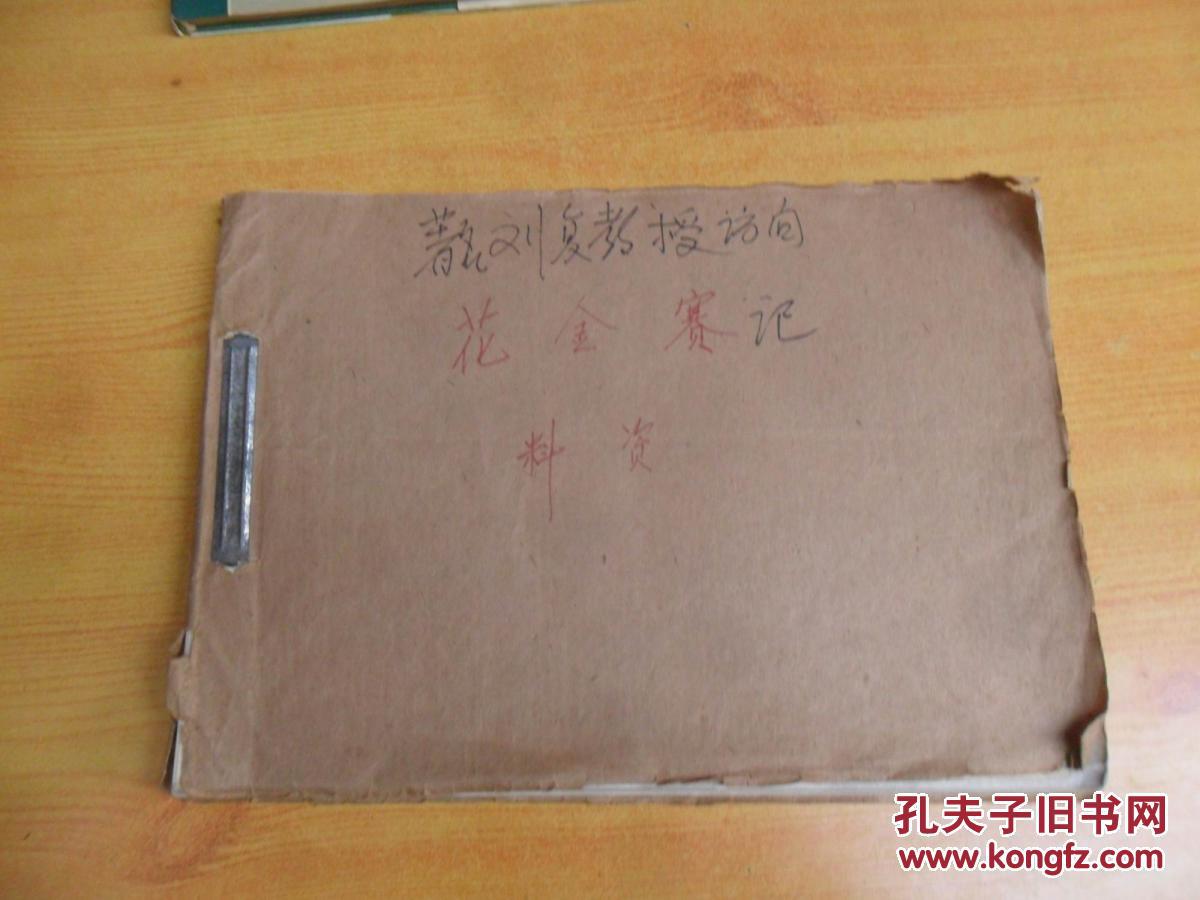 刘复教授访向
花金赛记
料资
孔夫子旧书网
www.kongfz.com